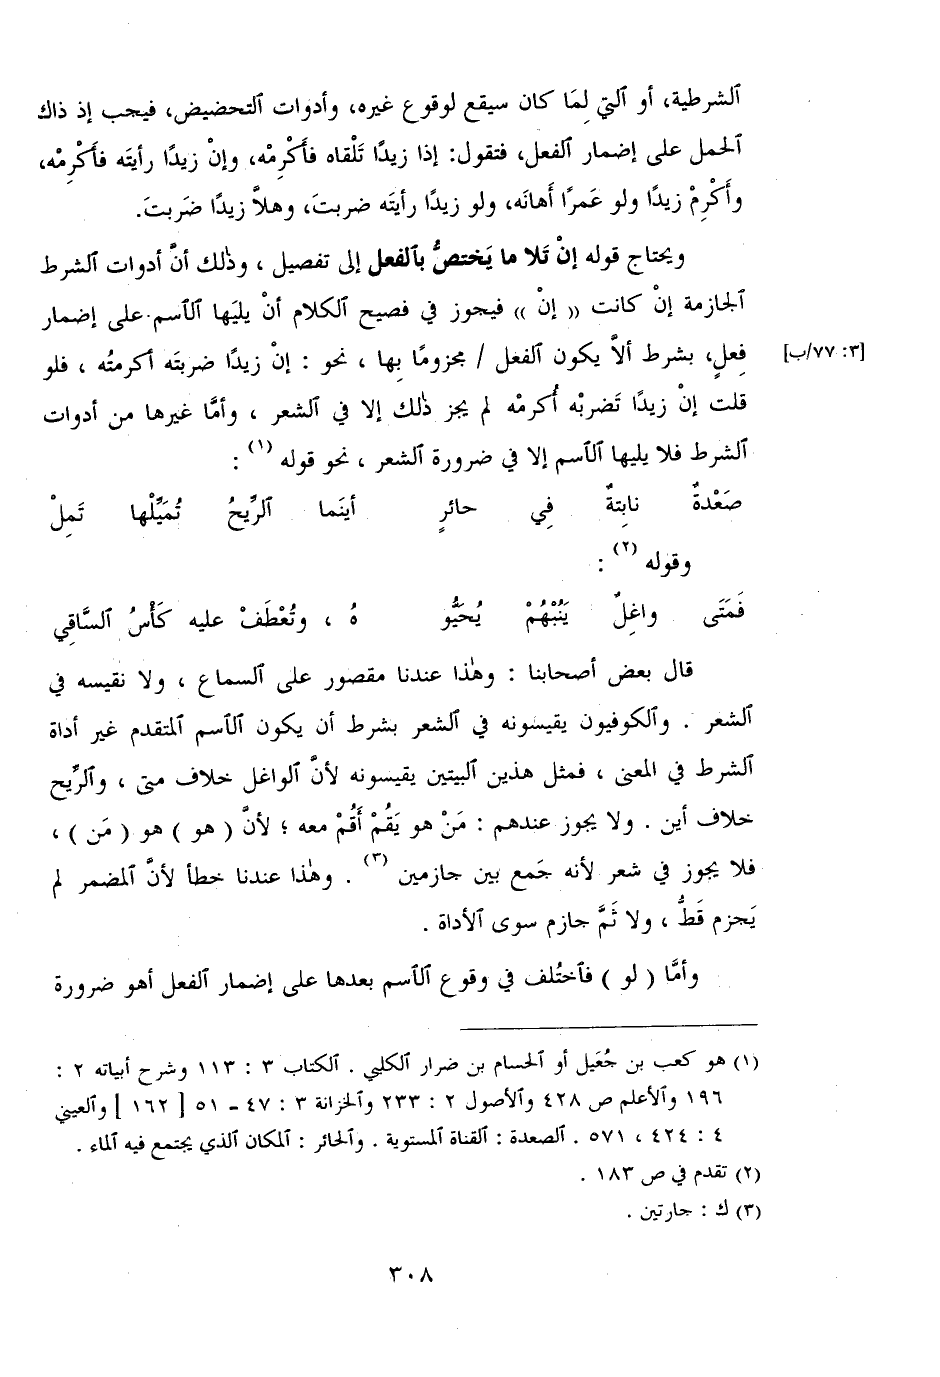 ٱلشرطية، أو ٱلتي لِمَا كان سيقع لوقوع غيره، وأدوات ٱلتحضيض، فيجب إذ ذاك
ٱلحمل على إضمار ٱلفعل، فتقول: إذا زيدًا تَلْقاه فأَكْرِمْه، وإنْ زيدًا رأيتَه فأكْرِمْه،
وأَكْرِمْ زيدًا ولو عَمرًا أَهانَه، ولو زيدًا رأيتَه ضربتَ، وهلاَّ زيدًا ضَربتَ.
ويحتاج قوله إنْ تَلا ما يَختصُّ بٱلفعل إلى تفصيل ، وذٰلك أنَّ أدوات ٱلشرط
ٱلجازمة إنْ كانت « إنْ » فيجوز في فصيح ٱلكلام أنْ يليَها ٱلٱسم على إضمار
فِعلٍ، بشرط ألاَّ يكون ٱلفعل / مجزومًا بِها ، نحو : إنْ زيدًا ضربتَه أكرمتُه ، فلو [٣: ٧٧/ب]
قلت إنْ زيدًا تَضربْه أُكرمْه لم يجز ذٰلك إلا في ٱلشعر ، وأمَّا غيرها من أدوات
ٱلشرط فلا يليها ٱلٱسم إلا في ضرورة ٱلشعر ، نحو قوله (١) :
صَعْدةٌ نابِتةٌ فِي حائرٍ أينَما ٱلرِّيحُ تُمَيِّلْها تَمِلْ
وقوله (٢) :
فَمَتَى واغِلٌ يَنُبْهُمْ يُحَيُّو هُ ، وتُعْطَفْ عليه كَأْسُ ٱلسَّاقِي
قال بعض أصحابنا : وهٰذا عندنا مقصور على ٱلسماع ، ولا نقيسه في
ٱلشعر . وٱلكوفيون يقيسونه في ٱلشعر بشرط أن يكون ٱلٱسم ٱلمتقدم غير أداة
ٱلشرط في المعنى ، فمثل هذين ٱلبيتين يقيسونه لأنَّ ٱلواغل خلاف متى ، وٱلرِّيح
خلاف أين . ولا يجوز عندهم : مَنْ هو يَقُمْ أَقُمْ معه ؛ لأنَّ ( هو ) هو ( مَن ) ،
فلا يجوز في شعر لأنه جَمع بين جازمين (٣) . وهٰذا عندنا خطأ لأنَّ ٱلمضمر لم
يَجزم قَطُّ ، ولا ثَمَّ جازم سوى ٱلأداة .
وأمَّا ( لو ) فٱختُلف في وقوع ٱلٱسم بعدها على إضمار ٱلفعل أهو ضرورة
(١) هو كعب بن جُعَيل أو ٱلحسام بن ضرار ٱلكلبي . ٱلكتاب ٣ : ١١٣ وشرح أبياته ٢ :
١٩٦ وٱلأعلم ص ٤٢٨ وٱلأصول ٢ : ٢٣٣ وٱلخزانة ٣ : ٤٧ – ٥١ [ ١٦٢ ] وٱلعيني
٤ : ٤٢٤ ، ٥٧١ . ٱلصعدة : ٱلقناة ٱلمستوية . وٱلحائر : ٱلمكان ٱلذي يجتمع فيه ٱلماء .
(٢) تقدم في ص ١٨٣ .
(٣) ك : جارتين .
٣٠٨